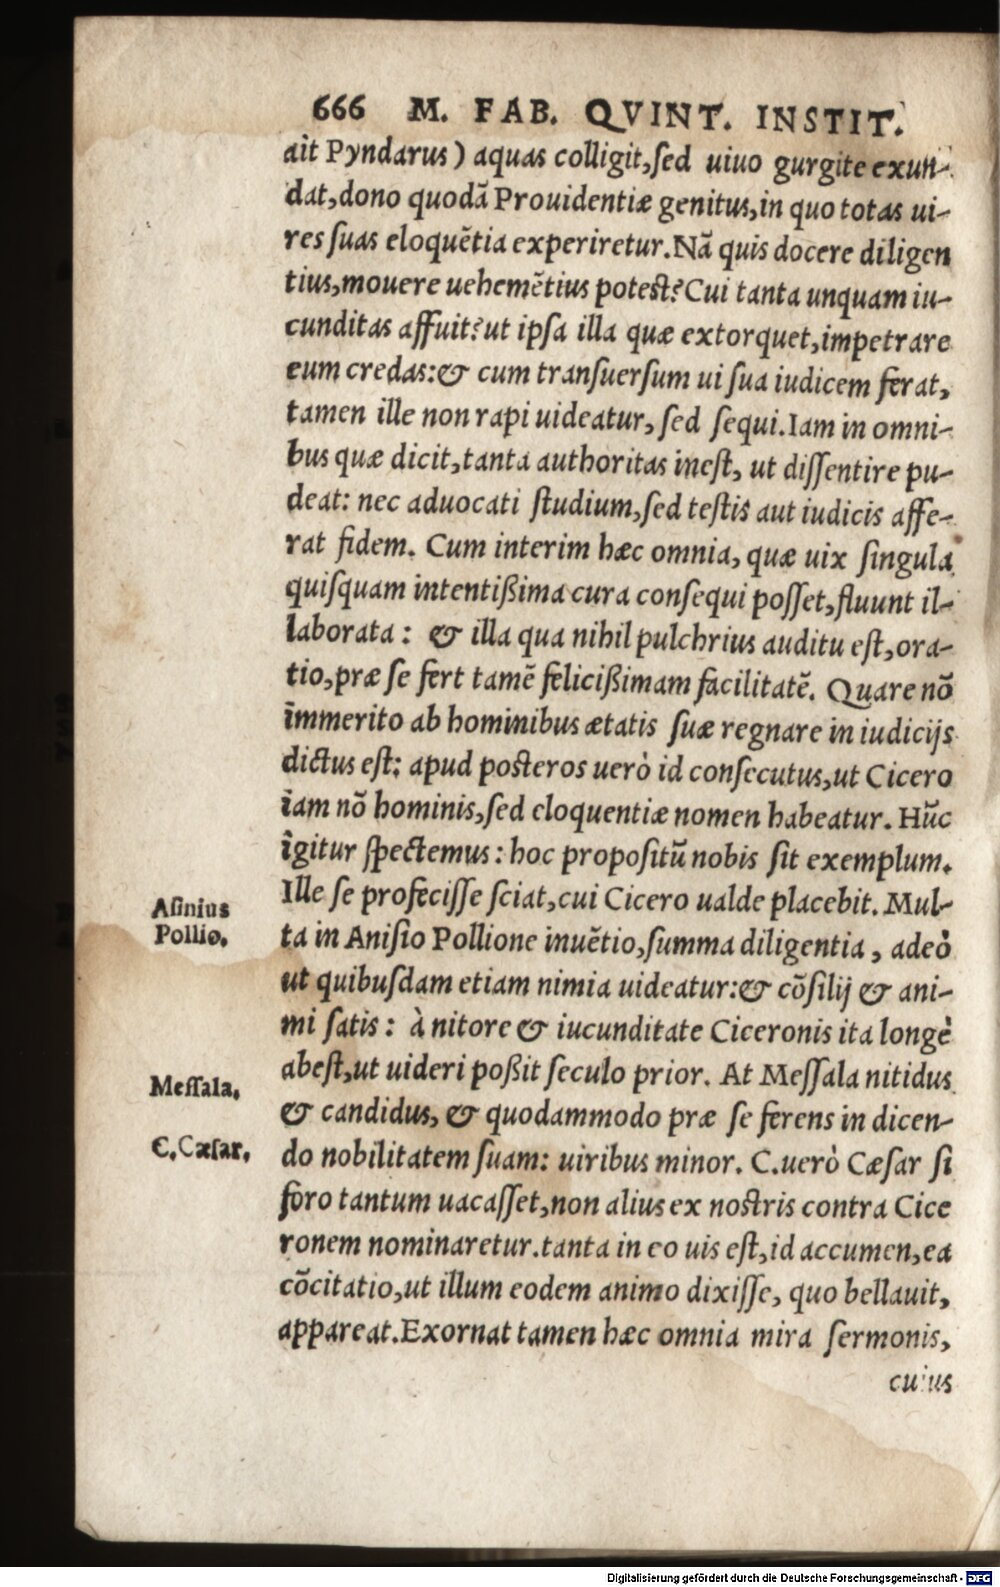 666 M. FAB. QVINT. INSTIT.
ait Pyndarus) aquas colligit,ſed uiuo gurgite exun-
dat,dono quodã Prouidentiæ genitus,in quo totas ui-
res ſuas eloquẽtia experiretur.Nã quis docere diligen
tius,mouere uehemẽtius poteſt?Cui tanta unquam iu-
cunditas affuit?ut ipſa illa quæ extorquet,impetrare
eum credas:& cum tranſuerſum ui ſua iudicem ferat,
tamen ille non rapi uideatur, ſed ſequi.Iam in omni-
bus quæ dicit,tanta authoritas ineſt, ut diſſentire pu-
deat: nec aduocati ſtudium,ſed teſtis aut iudicis affe-
rat fidem. Cum interim hæc omnia, quæ uix ſingula
quiſquam intentißima cura conſequi poſſet,fluunt il-
laborata : & illa qua nihil pulchrius auditu eſt,ora-
tio,præ ſe fert tamẽ felicißimam facilitatẽ. Quare nõ
immerito ab hominibus ætatis ſuæ regnare in iudicijs
dictus eſt: apud poſteros uerò id conſecutus,ut Cicero
iam nõ hominis,ſed eloquentiæ nomen habeatur. Hũc
igitur ſpectemus: hoc propoſitũ nobis ſit exemplum.
Ille ſe profeciſſe ſciat,cui Cicero ualde placebit. Mul-
Aſinius
Pollio.
ta in Aniſio Pollione inuẽtio,ſumma diligentia, adeò
ut quibuſdam etiam nimia uideatur:& cõſilij & ani-
mi ſatis: à nitore & iucunditate Ciceronis ita longè
abeſt,ut uideri poßit ſeculo prior. At Meſſala nitidus
Meſſala.
& candidus, & quodammodo præ ſe ferens in dicen-
C.Cæſar.
do nobilitatem ſuam: uiribus minor. C.uerò Cæſar ſi
foro tantum uacaſſet,non alius ex noſtris contra Cice
ronem nominaretur.tanta in eo uis eſt,id accumen,ea
cõcitatio,ut illum eodem animo dixiſſe, quo bellauit,
appareat.Exornat tamen hæc omnia mira ſermonis,
cuius
Digitalisierung gefördert durch die Deutsche Forschungsgemeinschaft - DFG